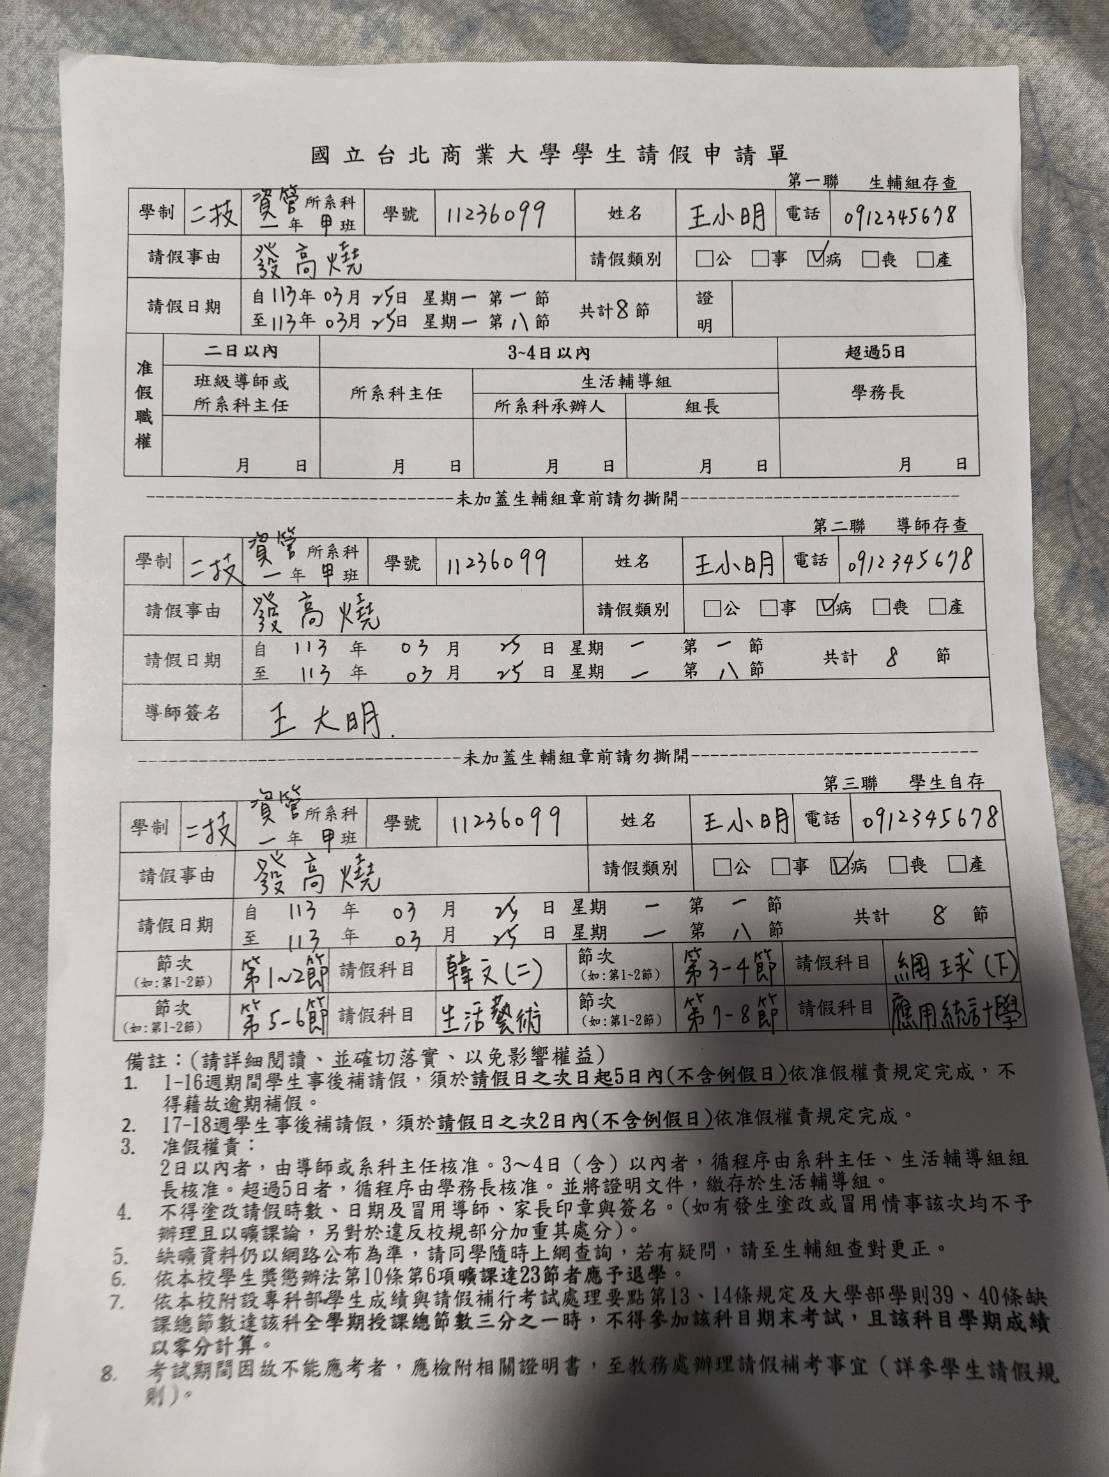 國立台北商業大學學生請假申請單
第一聯 生輔組存查
學制 二技 資管 所系科 一 年 甲 班 學號 11236099 姓名 王小明 電話 0912345678
請假事由 發高燒 請假類別 □公 □事 ☑病 □喪 □產
請假日期 自 113 年 03 月 25 日 星期 一 第 一 節 共計 8 節 證明
至 113 年 03 月 25 日 星期 一 第 八 節
准假職權 二日以內 3~4日以內 超過5日
班級導師或所系科主任 所系科主任 生活輔導組 學務長
所系科承辦人 組長
月 日 月 日 月 日 月 日 月 日
未加蓋生輔組章前請勿撕開
第二聯 導師存查
學制 二技 資管 所系科 一 年 甲 班 學號 11236099 姓名 王小明 電話 0912345678
請假事由 發高燒 請假類別 □公 □事 ☑病 □喪 □產
請假日期 自 113 年 03 月 25 日 星期 一 第 一 節 共計 8 節
至 113 年 03 月 25 日 星期 一 第 八 節
導師簽名 王大明.
未加蓋生輔組章前請勿撕開
第三聯 學生自存
學制 二技 資管 所系科 一 年 甲 班 學號 11236099 姓名 王小明 電話 0912345678
請假事由 發高燒 請假類別 □公 □事 ☑病 □喪 □產
請假日期 自 113 年 03 月 25 日 星期 一 第 一 節 共計 8 節
至 113 年 03 月 25 日 星期 一 第 八 節
節次 (如:第1~2節) 第1~2節 請假科目 韓文(二) 節次 (如:第1~2節) 第3-4節 請假科目 網球(下)
節次 (如:第1~2節) 第5-6節 請假科目 生活藝術 節次 (如:第1~2節) 第7-8節 請假科目 應用統計學
備註：(請詳細閱讀、並確切落實、以免影響權益)
1. 1-16週期間學生事後補請假，須於請假日之次日起5日內(不含例假日)依准假權責規定完成，不
得藉故逾期補假。
2. 17-18週學生事後補請假，須於請假日之次2日內(不含例假日)依准假權責規定完成。
3. 准假權責：
2日以內者，由導師或系科主任核准。3～4日（含）以內者，循程序由系科主任、生活輔導組組
長核准。超過5日者，循程序由學務長核准。並將證明文件，繳存於生活輔導組。
4. 不得塗改請假時數、日期及冒用導師、家長印章與簽名。(如有發生塗改或冒用情事該次均不予
辦理且以曠課論，另對於違反校規部分加重其處分)。
5. 缺曠資料仍以網路公布為準，請同學隨時上網查詢，若有疑問，請至生輔組查對更正。
6. 依本校學生獎懲辦法第10條第6項曠課達23節者應予退學。
7. 依本校附設專科部學生成績與請假補行考試處理要點第13、14條規定及大學部學則39、40條缺
課總節數達該科全學期授課總節數三分之一時，不得參加該科目期末考試，且該科目學期成績
以零分計算。
8. 考試期間因故不能應考者，應檢附相關證明書，至教務處辦理請假補考事宜（詳參學生請假規
則）。